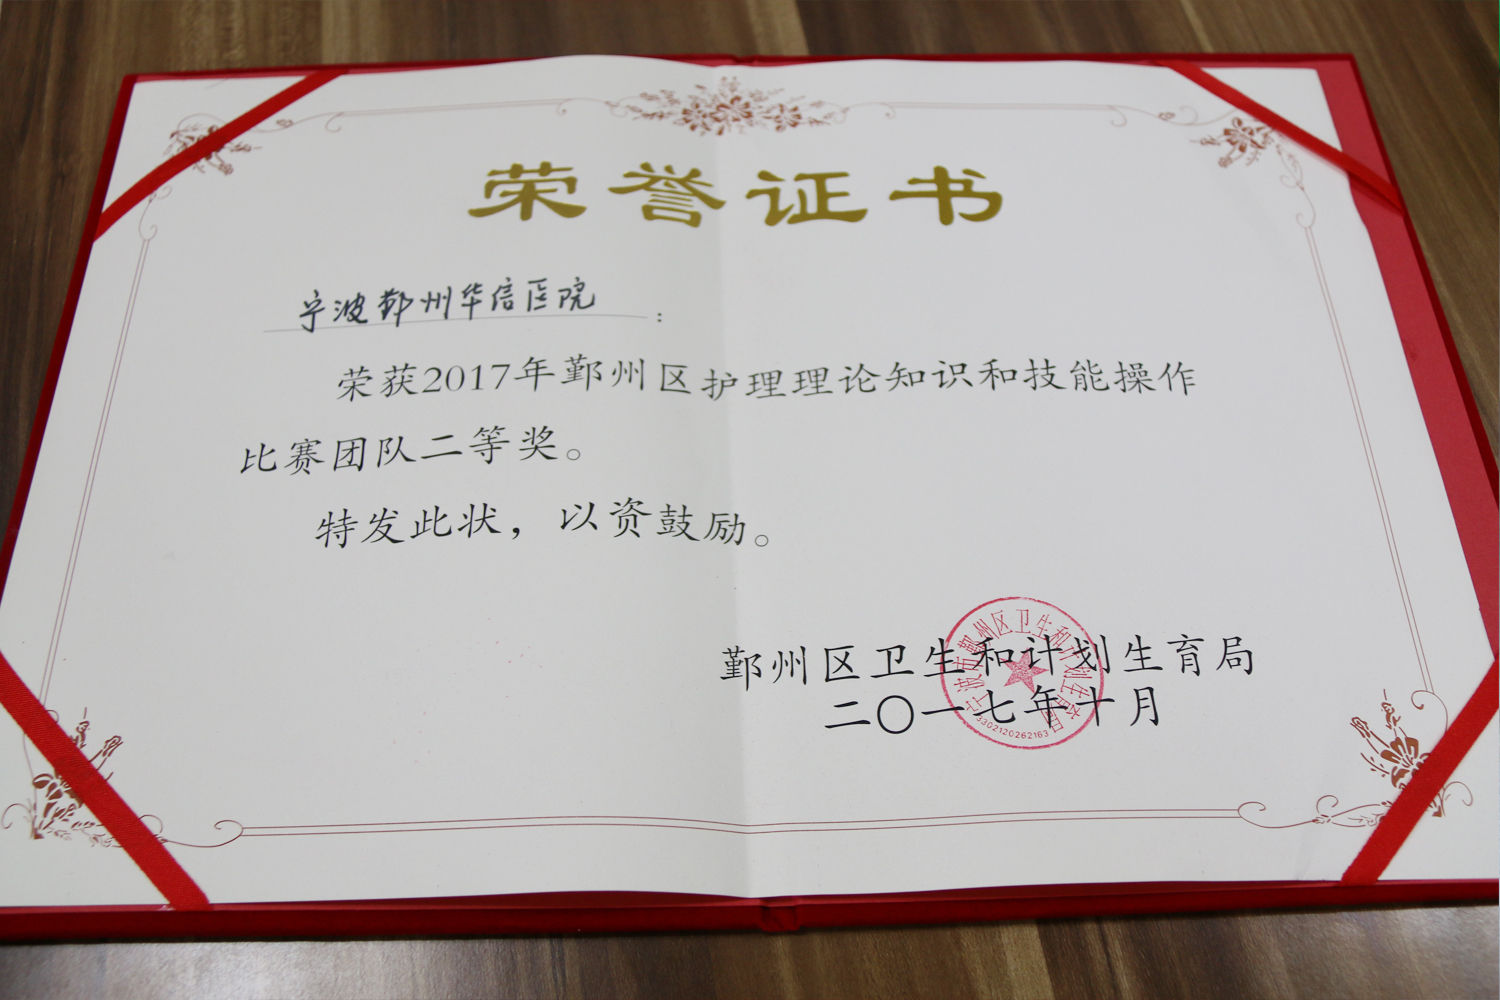 荣誉证书
宁波鄞州华信医院：
荣获2017年鄞州区护理理论知识和技能操作
比赛团队二等奖。
特发此状，以资鼓励。
鄞州区卫生和计划生育局
二〇一七年十月
宁波市鄞州区卫生和计划生育局
3302120262163